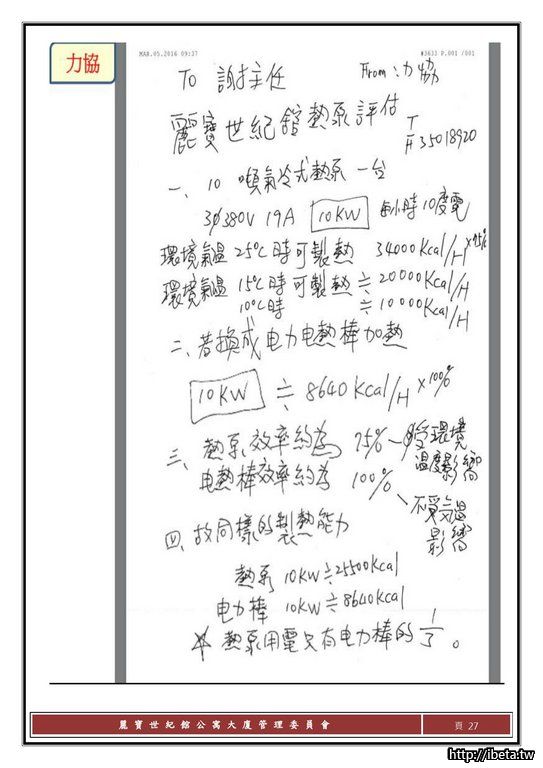 力協
MAR.05.2016 09:37
#3633 P.001 /001
TO 謝主任
From：力協
麗寶世紀館熱泵評估
T
F 35018920
一、10噸氣冷式熱泵一台
3∮380V 19A 10KW 每小時10度電
環境氣溫 25℃時可製熱 34000Kcal/H ×75%
環境氣溫 15℃時可製熱≒20000Kcal/H
10℃時 ≒10000Kcal/H
二、若換成电力电熱棒加熱
10KW ≒ 8640Kcal/H ×100%
三、熱泵效率約為 75% 受環境
溫度影響
电熱棒效率約為 100%
不受氣溫
影響
四、故同樣的製熱能力
熱泵 10KW≒25500Kcal
电力棒 10KW≒8640Kcal
熱泵用電只有电力棒的 1/3。
麗寶世紀館公寓大廈管理委員會
頁 27
http://ibeta.tw